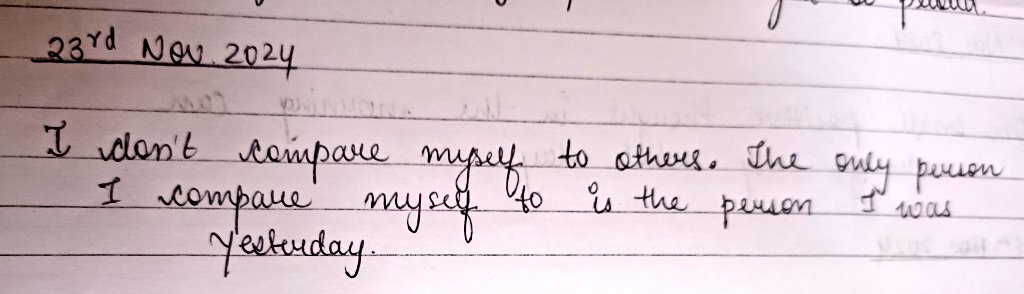 23rd Nov. 2024
I don't compare myself to others. The only person
I compare myself to is the person I was
yesterday.